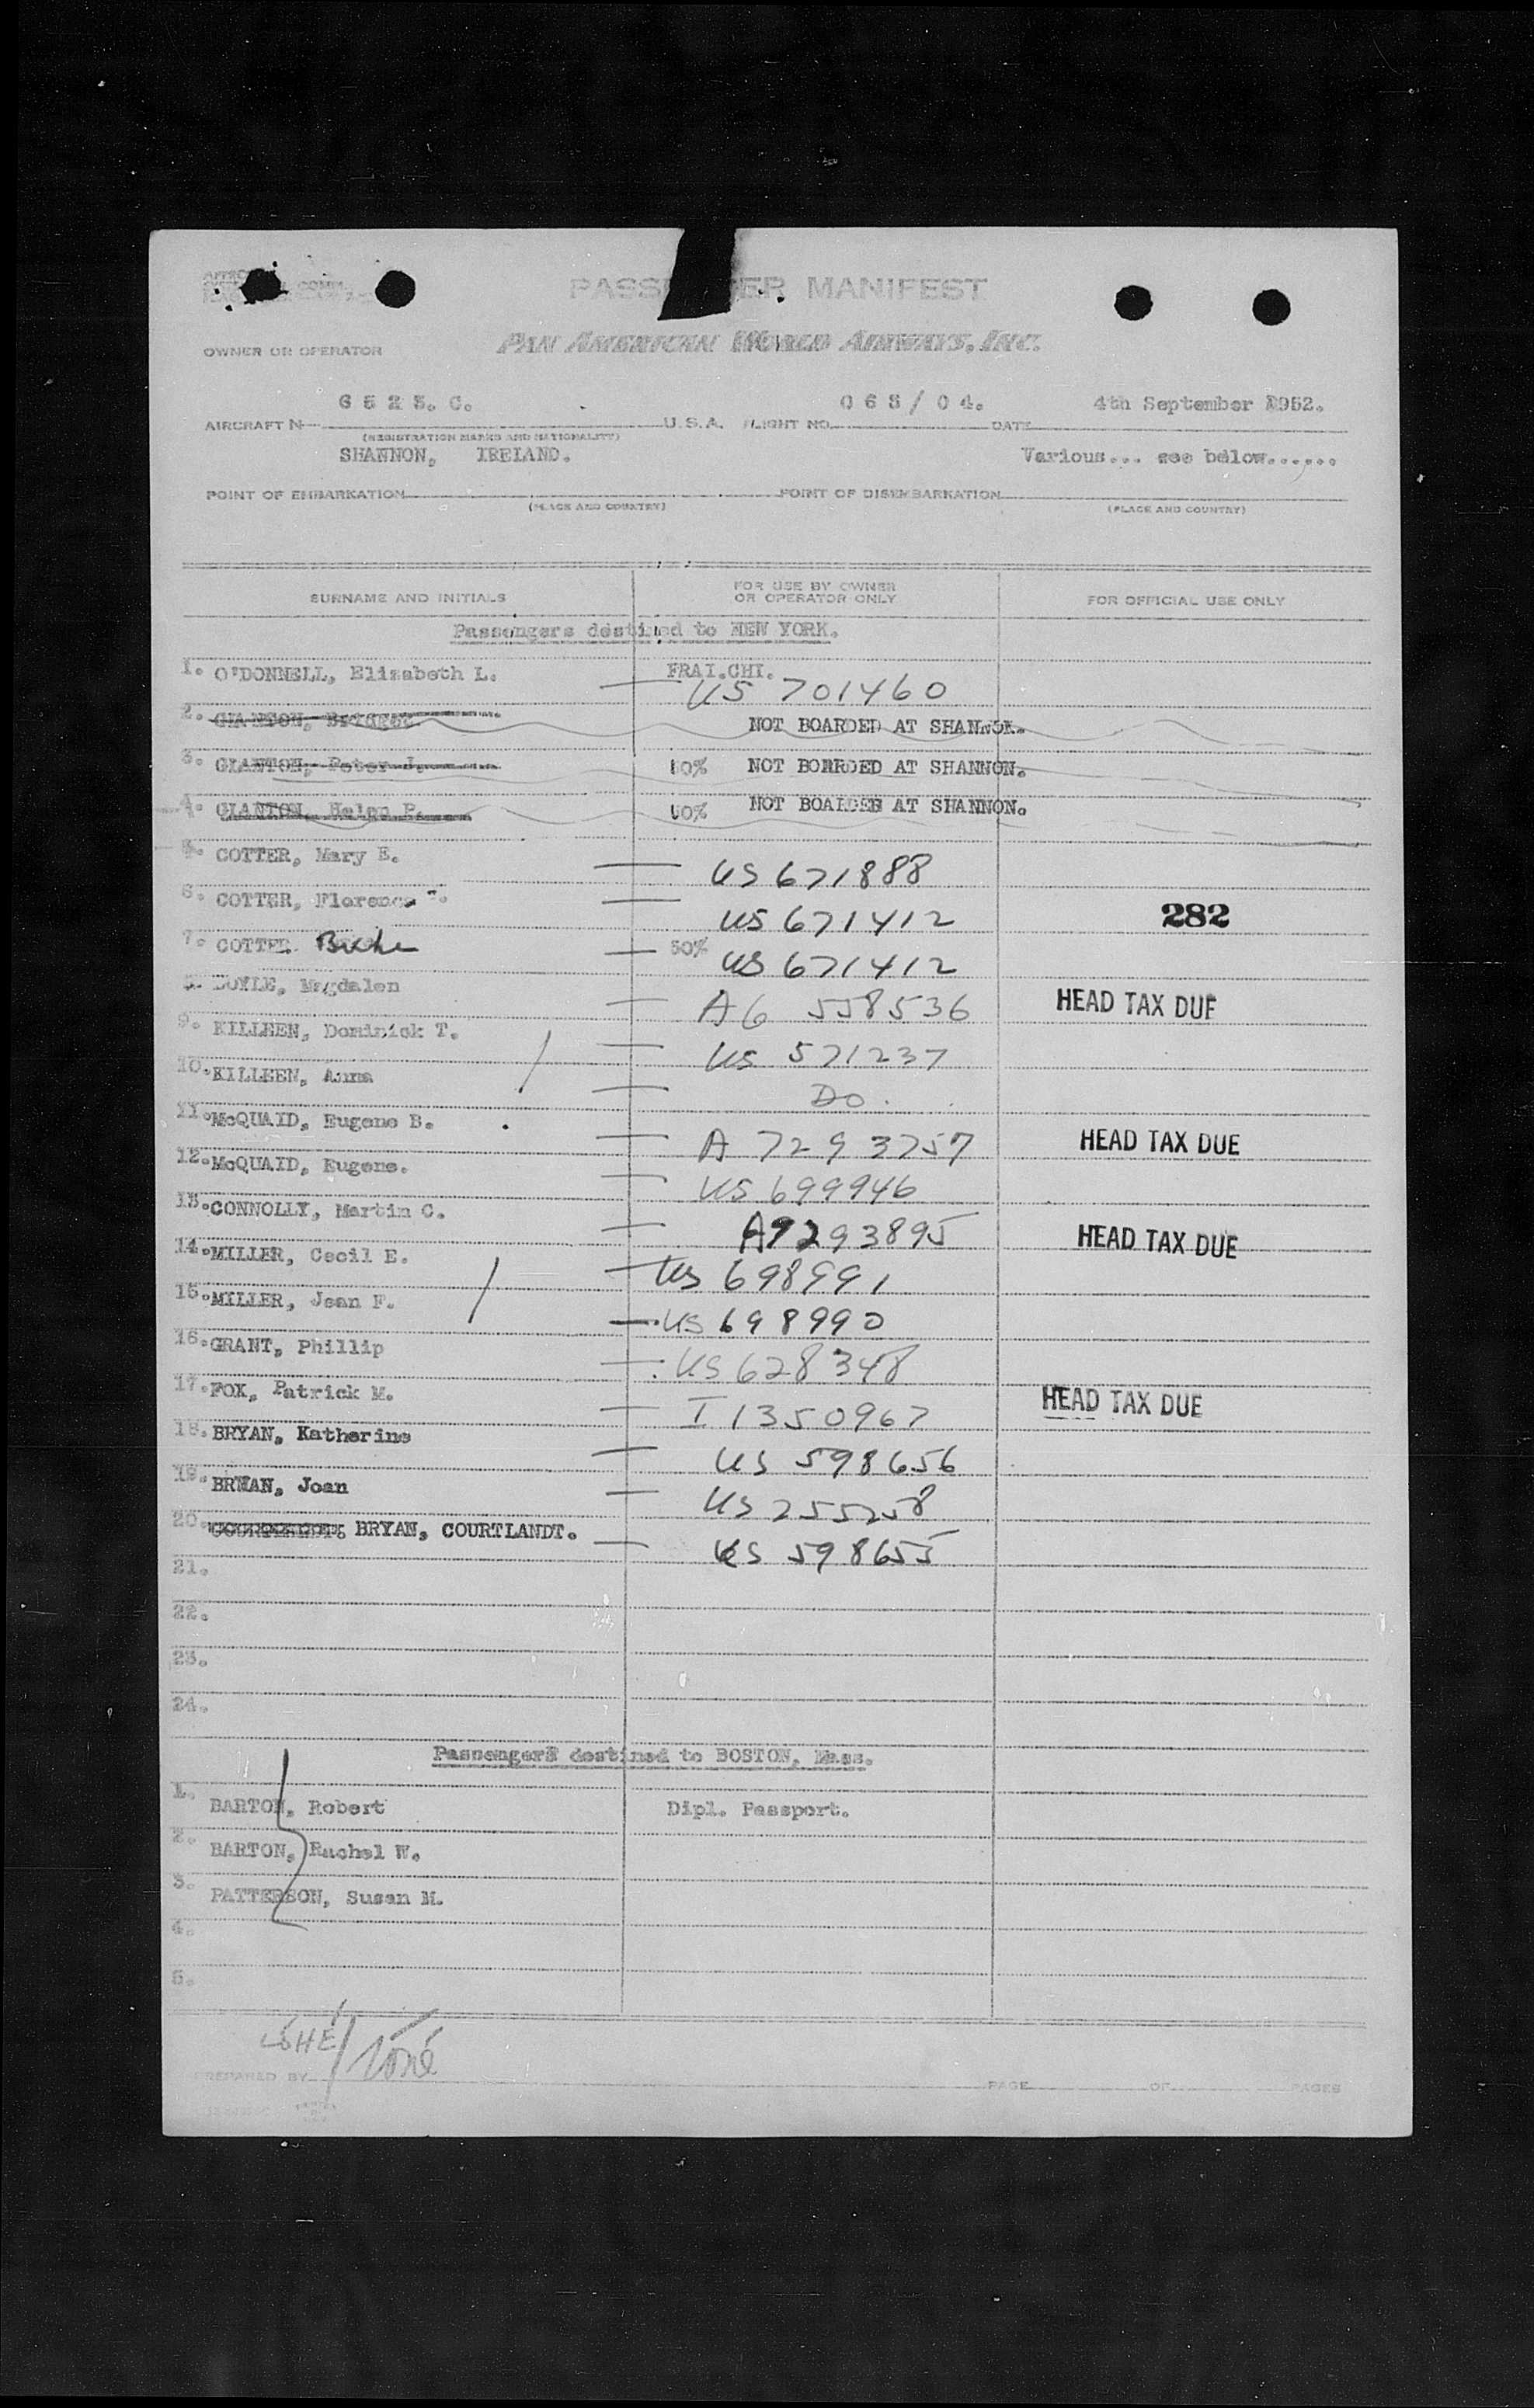 PASSENGER MANIFEST
OWNER OR OPERATOR PAN AMERICAN WORLD AIRWAYS, INC.
AIRCRAFT N 6523.C. U.S.A. FLIGHT NO. 063/04. DATE 4th September 1952.
(REGISTRATION MARKS AND NATIONALITY)
SHANNON, IRELAND. Various... see below......
POINT OF EMBARKATION POINT OF DISEMBARKATION
(PLACE AND COUNTRY) (PLACE AND COUNTRY)
SURNAME AND INITIALS FOR USE BY OWNER OR OPERATOR ONLY FOR OFFICIAL USE ONLY
Passengers destined to NEW YORK.
1. O'DONNELL, Elizabeth L. FRAI.CHI. US 701460
2. GLANTON, Bridget NOT BOARDED AT SHANNON.
3. GLANTON, Peter J. 50% NOT BOARDED AT SHANNON.
4. GLANTON, Helen P. 50% NOT BOARDED AT SHANNON.
5. COTTER, Mary E. US 671888
6. COTTER, Florence US 671412 282
7. COTTER 50% US 671412
8. DOYLE, Magdalen A6 558536 HEAD TAX DUE
9. KILLEEN, Dominick T. US 571237
10. KILLEEN, Anna Do.
11. McQUAID, Eugene B. A 7293757 HEAD TAX DUE
12. McQUAID, Eugene. US 699946
13. CONNOLLY, Martin C. A7293895 HEAD TAX DUE
14. MILLER, Cecil E. US 698991
15. MILLER, Jean F. US 698990
16. GRANT, Phillip US 628348
17. FOX, Patrick M. I 1350967 HEAD TAX DUE
18. BRYAN, Katherine US 598656
19. BRYAN, Joan US 255258
20. BRYAN, COURTLANDT. US 598655
21.
22.
23.
24.
Passengers destined to BOSTON, Mass.
1. BARTON, Robert Dipl. Passport.
2. BARTON, Rachel W.
3. PATTERSON, Susan M.
4.
5.
PREPARED BY PAGE OF PAGES